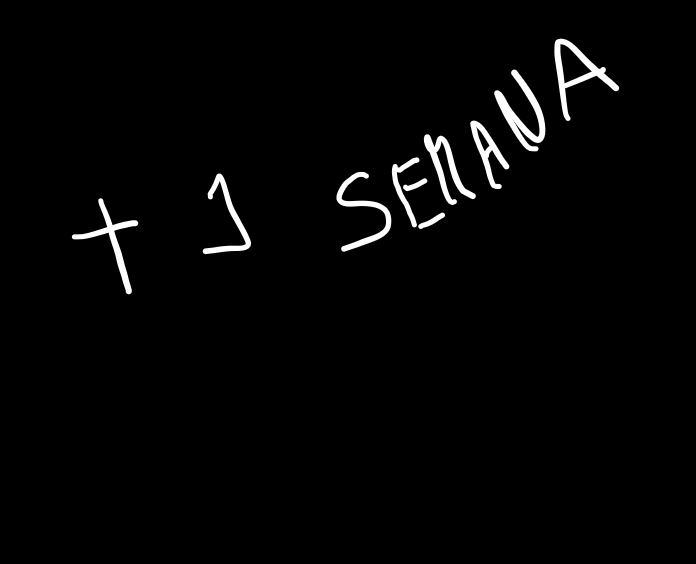 + 1 SEMANA